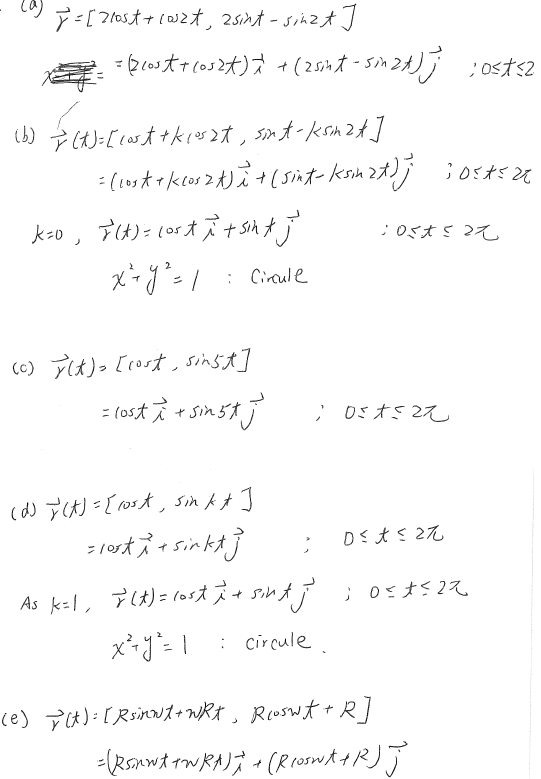 (a) r⃗ = [2cost + cos2t, 2sint - sin2t]
= (2cost + cos2t) i⃗ + (2sint - sin2t) j⃗ ; 0≤t≤2
(b) r⃗(t) = [cost + kcos2t, sint - ksin2t]
= (cost + kcos2t) i⃗ + (sint - ksin2t) j⃗ ; 0≤t≤2π
k=0, r⃗(t) = cost i⃗ + sint j⃗ ; 0≤t≤2π
x²+y²=1 : Circule
(c) r⃗(t) = [cost, sin5t]
= cost i⃗ + sin5t j⃗ ; 0≤t≤2π
(d) r⃗(t) = [cost, sin kt]
= cost i⃗ + sinkt j⃗ ; 0≤t≤2π
As k=1, r⃗(t) = cost i⃗ + sint j⃗ ; 0≤t≤2π
x²+y²=1 : circule.
(e) r⃗(t) = [Rsinwt + wRt, Rcoswt + R]
= (Rsinwt + wRt) i⃗ + (Rcoswt + R) j⃗